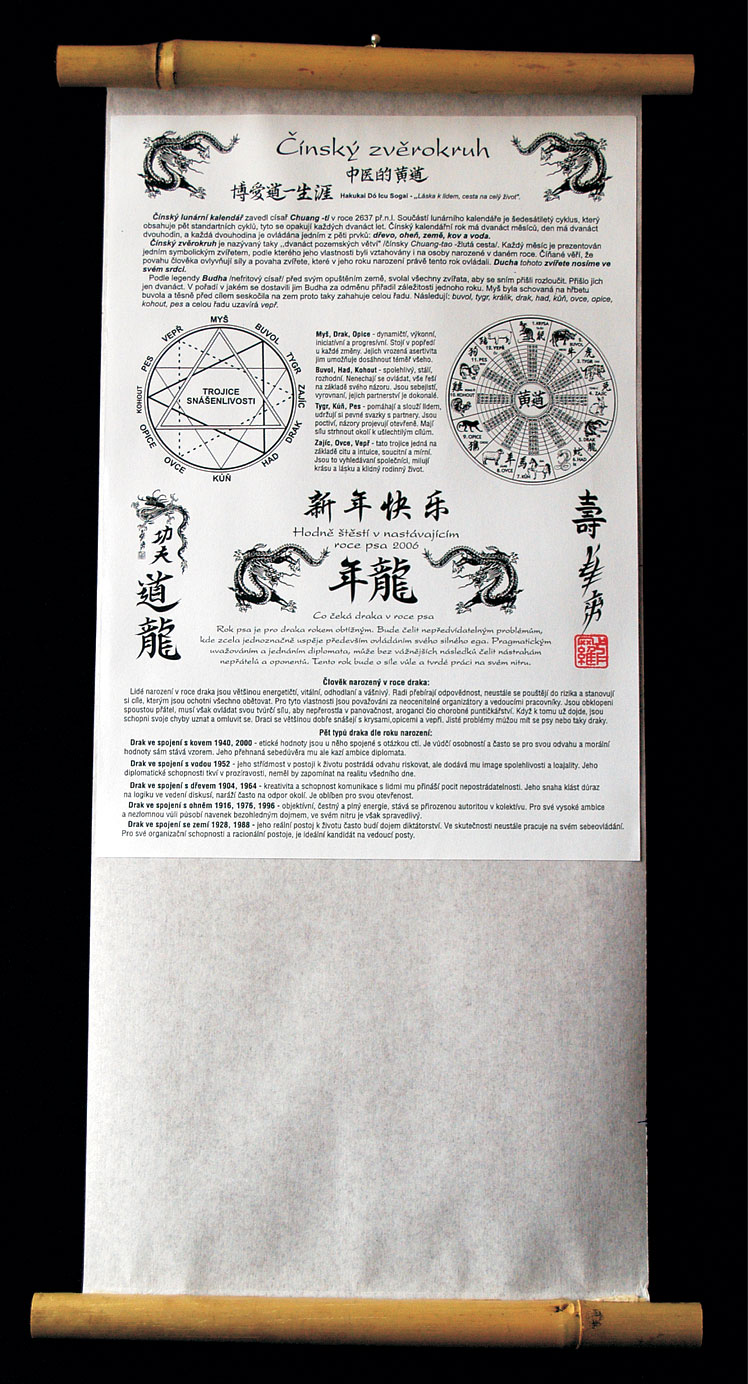 Čínský zvěrokruh
中医的黄道
博愛道一生涯 Hakukai Dó Icu Sogai - ,,Láska k lidem, cesta na celý život".
Čínský lunární kalendář zavedl císař Chuang -ti v roce 2637 př.n.l. Součástí lunárního kalendáře je šedesátiletý cyklus, který
obsahuje pět standartních cyklů, tyto se opakují každých dvanáct let. Čínský kalendářní rok má dvanáct měsíců, den má dvanáct
dvouhodin, a každá dvouhodina je ovládána jedním z pěti prvků: dřevo, oheň, země, kov a voda.
Čínský zvěrokruh je nazývaný taky ,,dvanáct pozemských větví" /čínsky Chuang-tao -žlutá cesta/. Každý měsíc je prezentován
jedním symbolickým zvířetem, podle kterého jeho vlastnosti byli vztahovány i na osoby narozené v daném roce. Číňané věří, že
povahu člověka ovlyvňují síly a povaha zvířete, které v jeho roku narození právě tento rok ovládali. Ducha tohoto zvířete nosíme ve
svém srdci.
Podle legendy Budha /nefritový císař/ před svým opuštěním země, svolal všechny zvířata, aby se sním přišli rozloučit. Přišlo jich
jen dvanáct. V pořadí v jakém se dostavili jim Budha za odměnu přiřadil záležitosti jednoho roku. Myš byla schovaná na hřbetu
buvola a těsně před cílem seskočila na zem proto taky zahahuje celou řadu. Následují: buvol, tygr, králik, drak, had, kůň, ovce, opice,
kohout, pes a celou řadu uzavírá vepř.
MYŠ
BUVOL
TYGR
ZAJÍC
DRAK
HAD
KŮŇ
OVCE
OPICE
KOHOUT
PES
VEPŘ
TROJICE
SNÁŠENLIVOSTI
Myš, Drak, Opice - dynamičtí, výkonní,
iniciativní a progresivní. Stojí v popředí
u každé změny. Jejich vrozená asertivita
jim umožňuje dosáhnout téměř všeho.
Buvol, Had, Kohout - spolehlivý, stálí,
rozhodní. Nenechají se ovládat, vše řeší
na základě svého názoru. Jsou sebejistí,
vyrovnaní, jejich partnerství je dokonalé.
Tygr, Kůň, Pes - pomáhají a slouží lidem,
udržují si pevné svazky s partnery. Jsou
poctiví, názory projevují otevřeně. Mají
sílu strhnout okolí k ušlechtilým cílům.
Zajíc, Ovce, Vepř - tato trojice jedná na
základě citu a intuice, soucitní a mírní.
Jsou to vyhledávaní společníci, milují
krásu a lásku a klidný rodinný život.
1. KRYSA
2. BUVOL
3. TYGR
4. ZAJÍC
5. DRAK
6. HAD
7. KŮŇ
8. OVCE
9. OPICE
10. KOHOUT
11. PES
12. VEPŘ
黄道
新年快乐
Hodně štěstí v nastávajícím
roce psa 2006
年龍
功夫
道龍
壽
Co čeká draka v roce psa
Rok psa je pro draka rokem obtížným. Bude čelit nepředvídatelným problémům,
kde zcela jednoznačně uspěje především ovládáním svého silného ega. Pragmatickým
uvažováním a jednáním diplomata, může bez vážnějších následků čelit nástrahám
nepřátel a oponentů. Tento rok bude o síle vůle a tvrdé práci na svém nitru.
Člověk narozený v roce draka:
Lidé narození v roce draka jsou většinou energetičtí, vitální, odhodlaní a vášniví. Radi přebírají odpovědnost, neustále se pouštějí do rizika a stanovují
si cíle, kterým jsou ochotní všechno obětovat. Pro tyto vlastnosti jsou považováni za neocenitelné organizátory a vedoucí pracovníky. Jsou obklopeni
spoustou přátel, musí však ovládat svou tvůrčí sílu, aby nepřerostla v panovačnost, aroganci čio chorobné puntičkářství. Když k tomu už dojde, jsou
schopni svoje chyby uznat a omluvit se. Draci se většinou dobře snášejí s krysami,opicemi a vepři. Jisté problémy můžou mít se psy nebo taky draky.
Pět typů draka dle roku narození:
Drak ve spojení s kovem 1940, 2000 - etické hodnoty jsou u něho spojené s otázkou cti. Je vůdčí osobností a často se pro svou odvahu a morální
hodnoty sám stává vzorem. Jeho přehnaná sebedůvěra mu ale kazí ambice diplomata.
Drak ve spojení s vodou 1952 - jeho střídmost v postoji k životu postrádá odvahu riskovat, ale dodává mu image spolehlivosti a loajality. Jeho
diplomatické schopnosti tkví v prozíravosti, neměl by zapomínat na realitu všedního dne.
Drak ve spojení s dřevem 1904, 1964 - kreativita a schopnost komunikace s lidmi mu přináší pocit nepostrádatelnosti. Jeho snaha klást důraz
na logiku ve vedení diskusí, naráží často na odpor okolí. Je oblíben pro svou otevřenost.
Drak ve spojení s ohněm 1916, 1976, 1996 - objektivní, čestný a plný energie, stává se přirozenou autoritou v kolektivu. Pro své vysoké ambice
a nezlomnou vůli působí navenek bezohledným dojmem, ve svém nitru je však spravedlivý.
Drak ve spojení se zemí 1928, 1988 - jeho reální postoj k životu často budí dojem diktátorství. Ve skutečnosti neustále pracuje na svém sebeovládání.
Pro své organizační schopnosti a racionální postoje, je ideální kandidát na vedoucí posty.